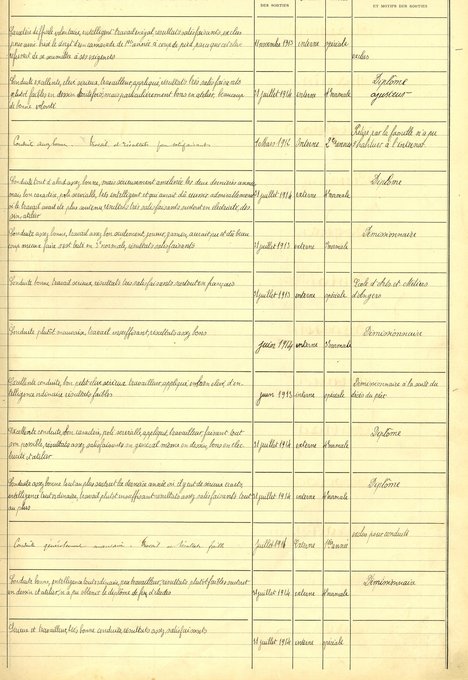 DES SORTIES
ET MOTIFS DES SORTIES
Caractère difficile, volontaire, intelligent travail inégal, résultats satisfaisants, exclus
pour avoir
un camarade de 1ère année à coups de pied parce que celui-ci
refusait de se soumettre à ses exigences
11 novembre 1913 interne spéciale
exclus
Conduite excellente, élève sérieux, travailleur, appliqué, résultats très satisfaisants
plutôt faibles en dessin toutefois, mais particulièrement bons en atelier, beaucoup
de bonne volonté
31 juillet 1914 interne 4e normale
Diplôme
ajusteur
Conduite assez bonne. Travail et résultats peu satisfaisants
Mars 1914 Interne 2e année
par la famille n'a pu
s'habituer à l'internat.
Conduite tout d'abord assez bonne, mais sérieusement améliorée les deux dernières années
mais bon caractère, poli, serviable, très intelligent et qui aurait dû réussir admirablement
si le travail avait été plus soutenu, résultats très satisfaisants surtout en électricité, des-
sin, atelier
31 juillet 1914 interne 4e normale
Diplôme
Conduite assez bonne, travail assez bon seulement, jeune gamin, aurait pu et dû beau-
coup mieux faire s'est
en 3e normale, résultats satisfaisants
31 juillet 1913 interne 3e normale
Démissionnaire
Conduite bonne, travail sérieux, résultats très satisfaisants surtout en français
31 juillet 1913 interne spéciale
Ecole d'Arts et Métiers
d'Angers
Conduite plutôt mauvaise, travail insuffisant, résultats assez bons
juin 1914 interne 3e normale
Démissionnaire
Excellente conduite, bon petit élève sérieux travailleur appliqué
élève d'in-
telligence ordinaire résultats faibles
juin 1913 interne spéciale
Démissionnaire à la suite du
décès du père
Excellente conduite, bon caractère, poli, serviable, appliqué, travailleur faisant tout
son possible, résultats assez satisfaisants en général même en dessin, bons en élec-
tricité et atelier
31 juillet 1914 externe 4e normale
Diplôme
Conduite assez bonne tout au plus surtout la dernière année où il y eut de sérieux écarts,
intelligence tout ordinaire, travail plutôt insuffisant résultats assez satisfaisants tout
au plus
31 juillet 1914 interne 4e normale
Diplôme
Conduite généralement mauvaise. Travail et
faible
Juillet 1914 Externe 1ère année
exclus pour conduite
Conduite bonne, intelligence tout ordinaire, assez travailleur, résultats plutôt faibles surtout
en dessin et atelier, n'a pu obtenir le diplôme de fin d'études
31 juillet 1914 interne 4e normale
Démissionnaire
Sérieux et travailleur, très bonne conduite, résultats assez satisfaisants
31 juillet 1914 interne spéciale